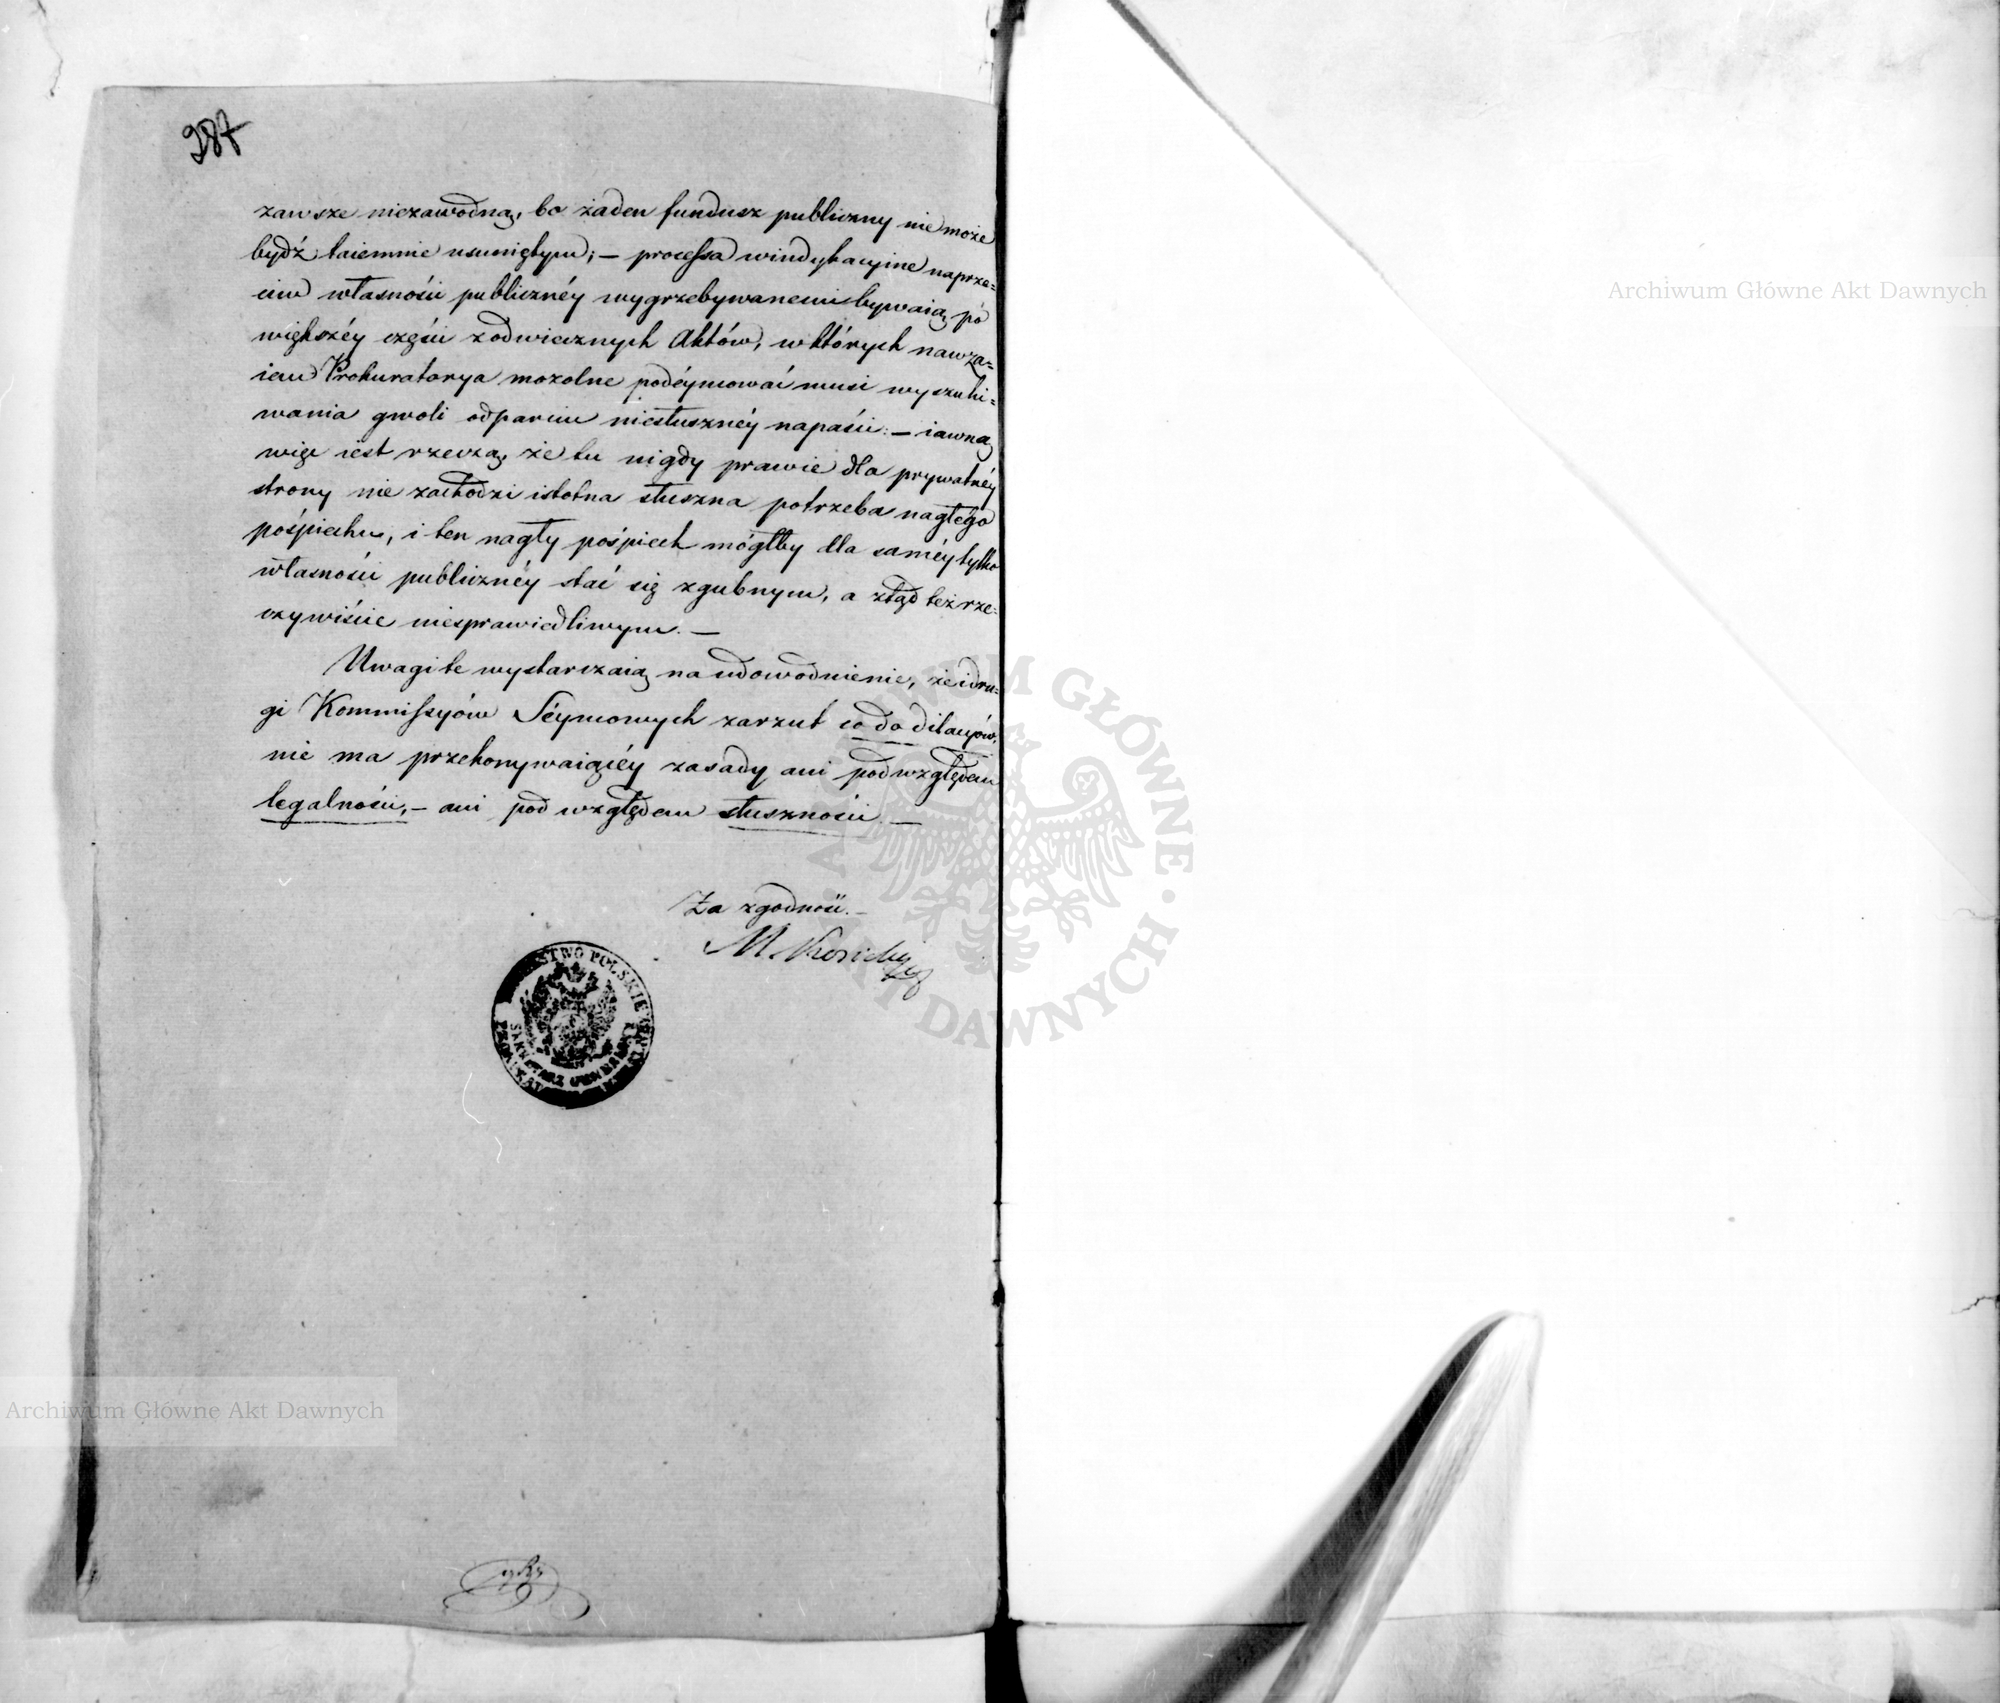 287
zawsze niezawodną, bo żaden fundusz publiczny nie może
bydź taiemnie usuniętym; — processa windykacyine naprze=
ciw własności publicznéy wygrzebywanemi bywaią po
większéy części z odwiecznych Aktów, w których nawza=
iem Prokuratorya mozolne podéymować musi wyszuki=
wania gwoli odparciu niesłusznéy napaści: — iawną
więc iest rzeczą, że tu nigdy prawie dla prywatnéy
strony nie zachodzi istotna słuszna potrzeba nagłégo
pośpiechu, i ten nagły pośpiech mógłby dla saméy tylko
własności publicznéy stać się zgubnym, a ztąd też rze=
czywiście niesprawiedliwym. —
Uwagi te wystarczaią na udowodnienie, że i dru=
gi Kommissyów Séymowych zarzut co do dilacyów,
nie ma przekonywaiącéy zasady ani pod względem
legalności, — ani pod względem słuszności. —
Za zgodność. —
M.
KRÓLESTWO POLSKIE
SEKRETARZ GENERALNY
Archiwum Główne Akt Dawnych
Archiwum Główne Akt Dawnych
ARCHIWUM GŁÓWNE AKT DAWNYCH